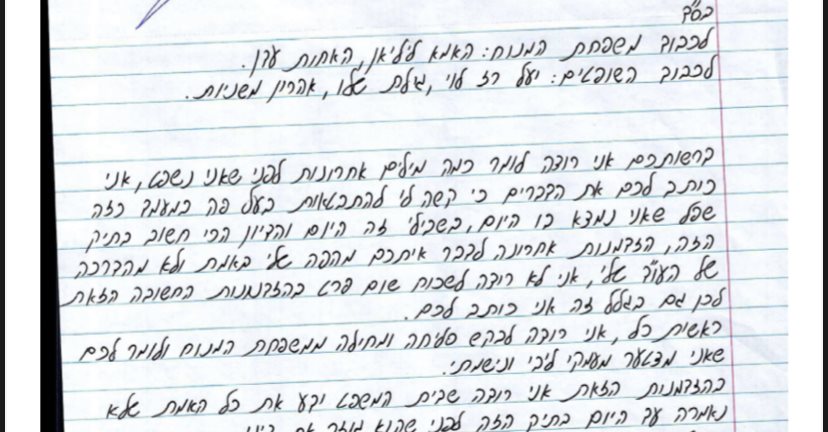 בס"ד
לכבוד משפחת המנוח: האמא ליליאן, האחות עדן.
לכבוד השופטים: יעל רז לוי, גילת שלו, אהרון משניות.
ברשותכם אני רוצה לומר כמה מילים אחרונות לפני שאני נשפט, אני
כותב לכם את הדברים כי קשה לי להתבטאות בעל פה במעמד כזה
שפל שאני נמצא בו היום, בשבילי זה היום והדיון הכי חשוב בתיק
הזה, הזדמנות אחרונה לדבר איתכם מהפה שלי באמת ולא מהדרכה
של העו"ד שלי, אני לא רוצה לשכוח שום פרט בהזדמנות החשובה הזאת
לכן גם בגלל זה אני כותב לכם.
ראשית כל, אני רוצה לבקש סליחה ומחילה ממשפחת המנוח ולומר לכם
שאני מצטער מעמקי ליבי ונישמתי.
בהזדמנות הזאת אני רוצה שבית המשפט ידע את כל האמת שלא
נאמרה עד היום בתיק הזה לפני שהוא גוזר את דיני